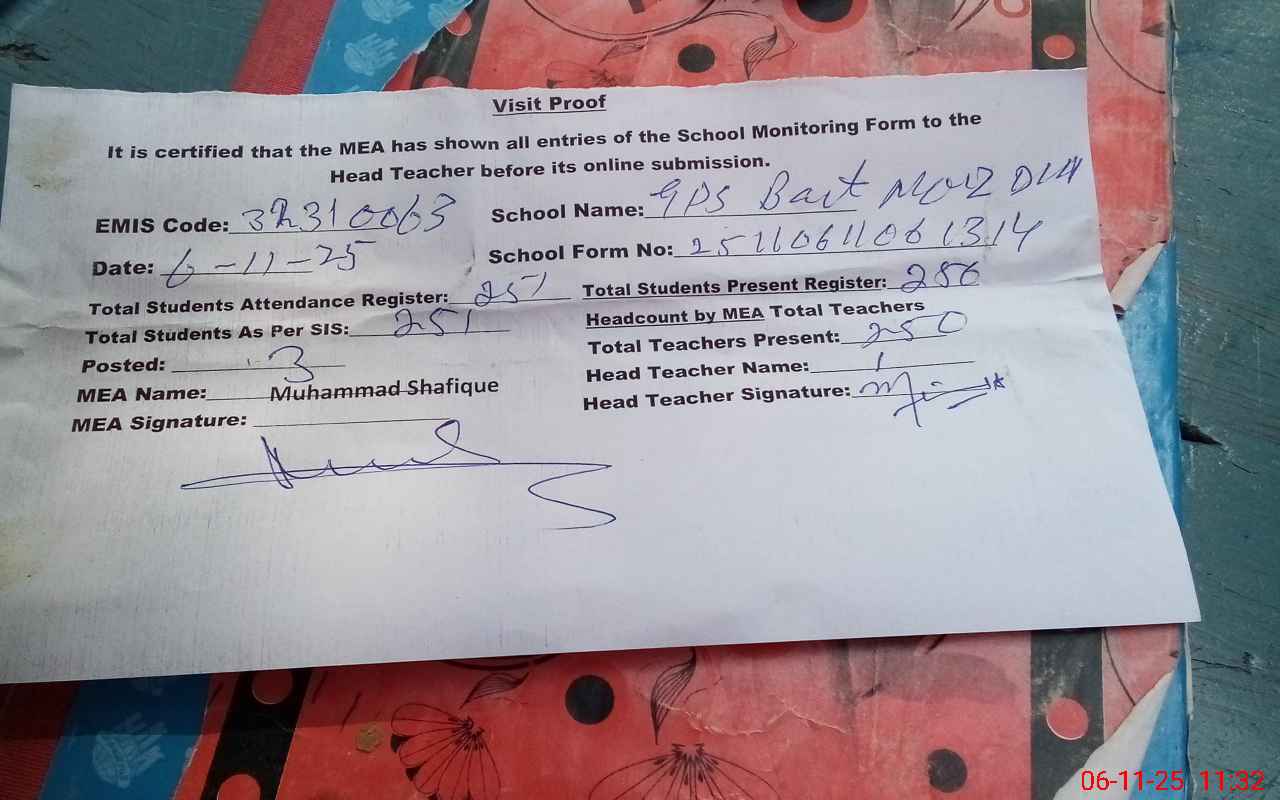 Visit Proof
It is certified that the MEA has shown all entries of the School Monitoring Form to the
Head Teacher before its online submission.
EMIS Code: 32310063 School Name: GPS Bait
Date: 6-11-25 School Form No: 25110611061314
Total Students Attendance Register: 251 Total Students Present Register: 250
Total Students As Per SIS: 251 Headcount by MEA Total Teachers
Posted: 3 Total Teachers Present: 250
MEA Name: Muhammad Shafique Head Teacher Name: 1
MEA Signature: Head Teacher Signature:
06-11-25 11:32